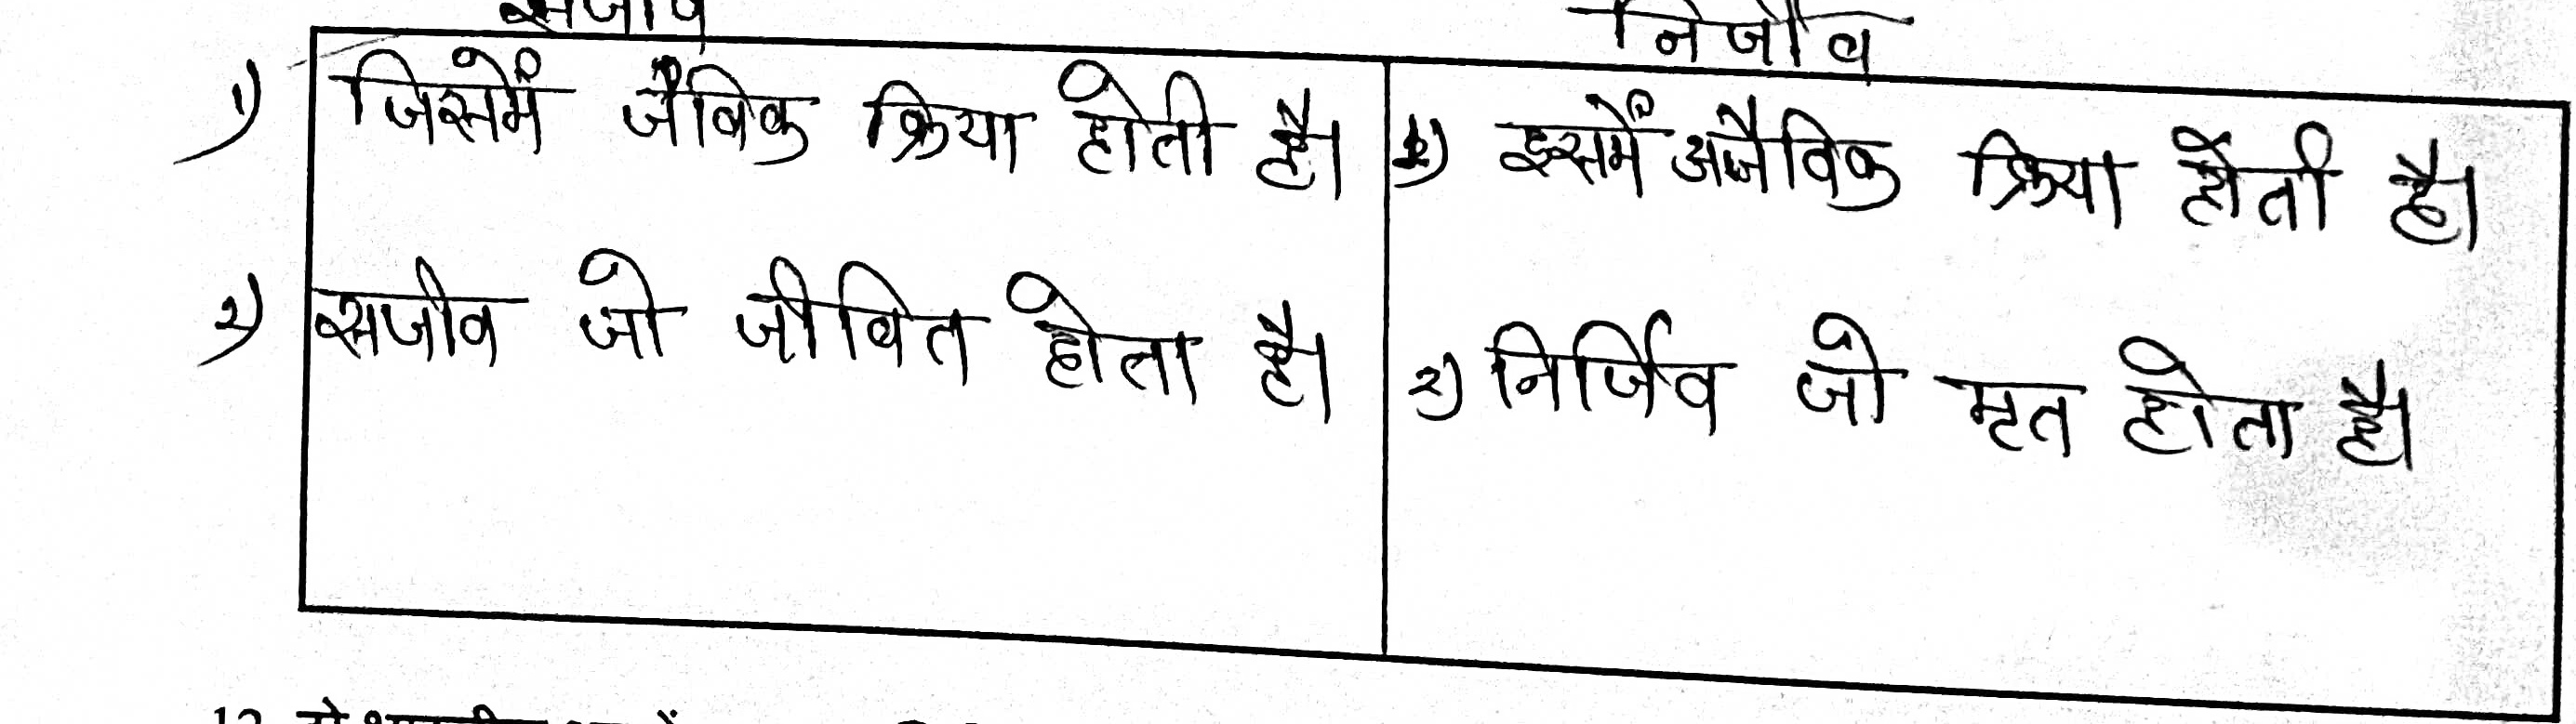 सजीव
निर्जीव
१) जिसमें जैविक क्रिया होती है।
१) इसमें अजैविक क्रिया होती है।
२) सजीव जो जीवित होता है।
२) निर्जिव जो मृत होता है।